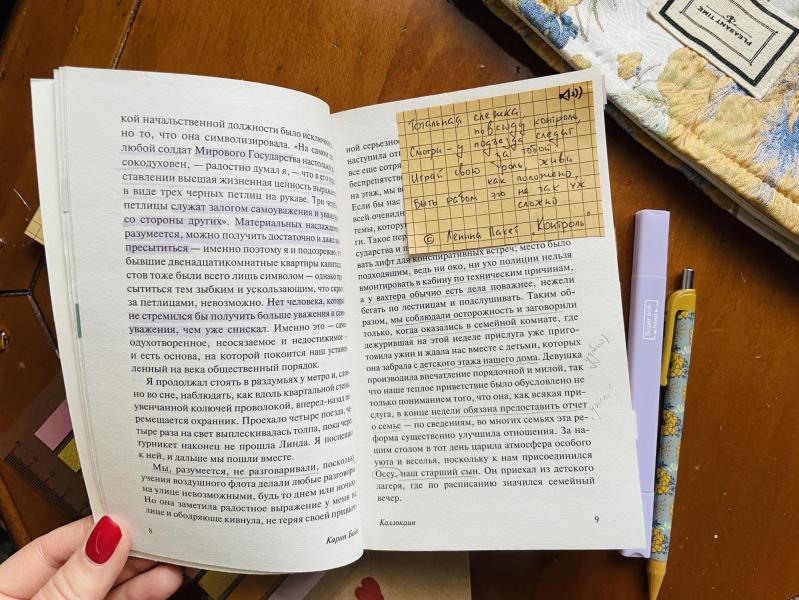 кой начальственной должности было исключ
но то, что она символизировала. «На самом
любой солдат Мирового Государства настолько
сокодуховен, — радостно думал я, — что в его
ставлении высшая жизненная ценность выраже
в виде трех черных петлиц на рукаве. Три чер
петлицы служат залогом самоуважения и уваже
со стороны других». Материальных наслажд
разумеется, можно получить достаточно и даже
пресытиться — именно поэтому я и подозреваю,
бывшие двенадцатикомнатные квартиры капита
стов тоже были всего лишь символом — однако
сытиться тем зыбким и ускользающим, что скр
за петлицами, невозможно. Нет человека, котор
не стремился бы получить больше уважения и само
уважения, чем уже снискал. Именно это — само
одухотворенное, неосязаемое и недостижимое —
и есть основа, на которой покоится наш устано
ленный на века общественный порядок.
Я продолжал стоять в раздумьях у метро и, слов
но во сне, наблюдать, как вдоль квартальной стены,
увенчанной колючей проволокой, вперед-назад
ремещается охранник. Проехало четыре поезда, че
тыре раза на свет выплескивалась толпа, пока через
турникет наконец не прошла Линда. Я поспешил
к ней, и дальше мы пошли вместе.
Мы, разумеется, не разговаривали, поскольку
учения воздушного флота делали любые разговоры
на улице невозможными, будь то днем или ночью.
Но она заметила радостное выражение у меня на
лице и ободряюще кивнула, не теряя своей привыч
8
Карин Бойе
PLEASANT TIME
Тотальная слежка,
повсюду контроль,
Смотри - у подъезда следят
за тобой
Играй свою роль, живи
как положено,
Быть рабом это не так уж
сложно
© Ленина Пакет "Контроль"
ной серьезно
наступила от
все еще сотря
беспрепятств
на этаж, мы в
Если бы нас
всей очевидн
темы, котору
ги. Такое пер
сударства и п
вать лифт для конспиративных встреч; место было
подходящим, ведь ни око, ни ухо полиции нельзя
вмонтировать в кабину по техническим причинам,
а у вахтера обычно есть дела поважнее, нежели
бегать по лестницам и подслушивать. Таким об-
разом, мы соблюдали осторожность и заговорили
только, когда оказались в семейной комнате, где
дежурившая на этой неделе прислуга уже приго-
товила ужин и ждала нас вместе с детьми, которых
она забрала с детского этажа нашего дома. Девушка
производила впечатление порядочной и милой, так
что наше теплое приветствие было обусловлено не
только пониманием того, что она, как всякая при-
слуга, в конце недели обязана предоставить отчет
о семье — по сведениям, во многих семьях эта ре-
форма существенно улучшила отношения. За на-
шим столом в тот день царила атмосфера особого
уюта и веселья, поскольку к нам присоединился
Оссу, наш старший сын. Он приехал из детского
лагеря, где по расписанию значился семейный
вечер.
Каллокаин
9